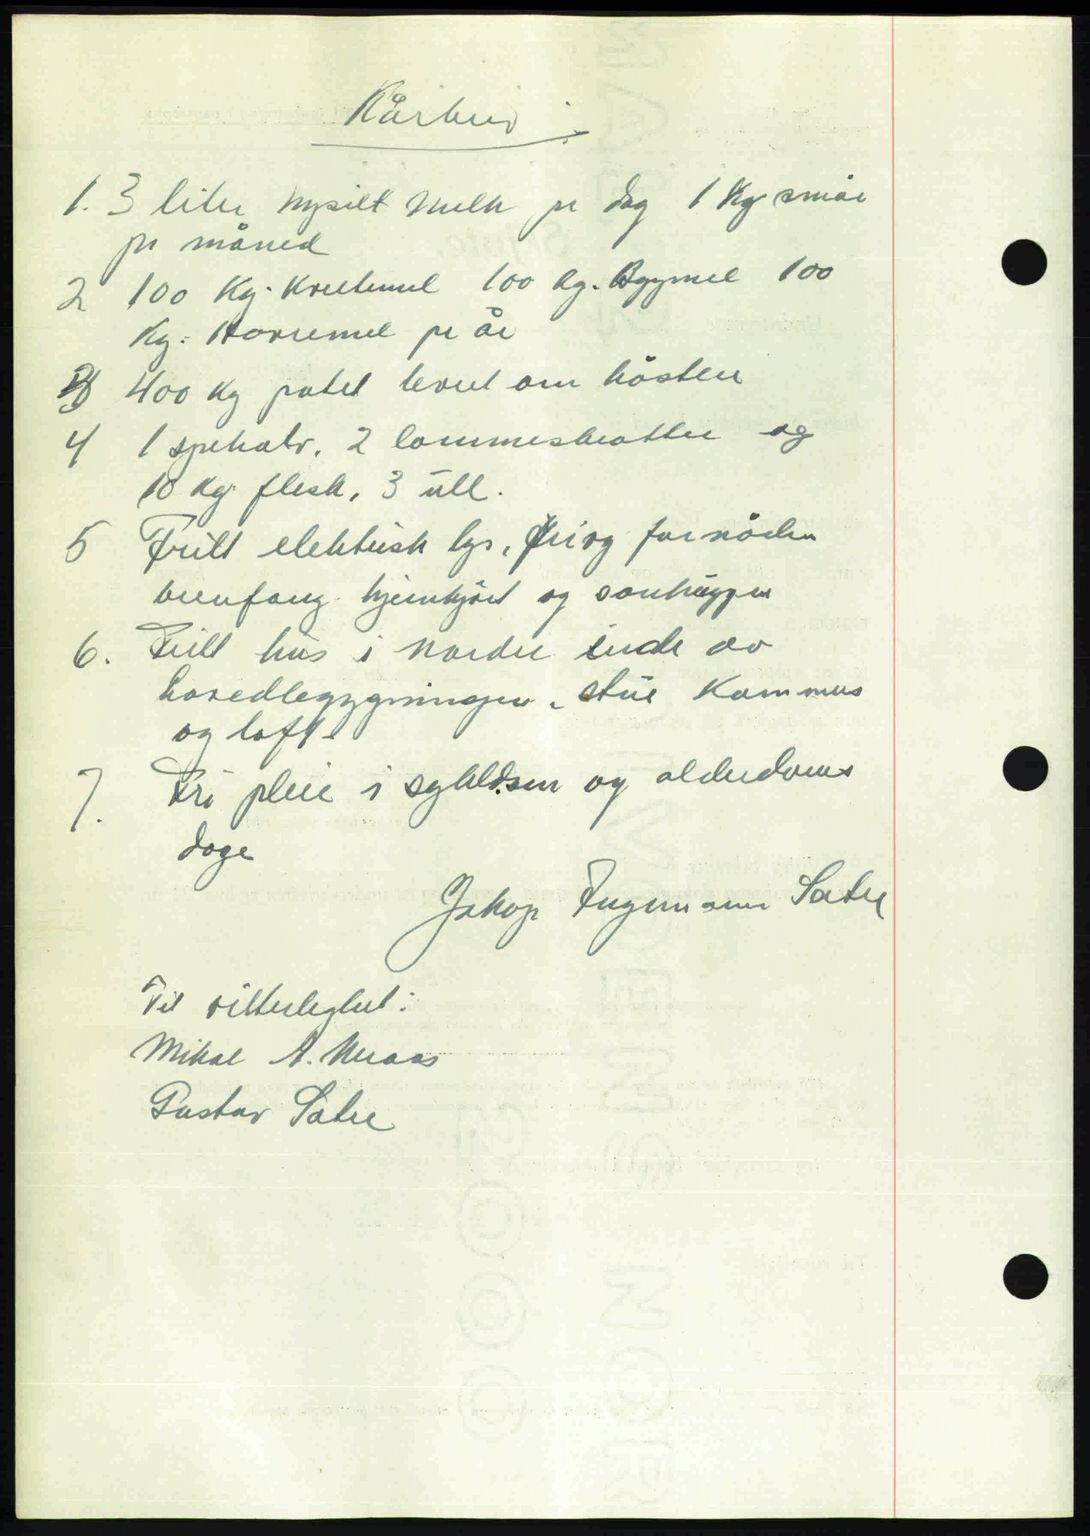 Kårbrev
1. 3 liter nysilt melk pr dag 1 Kg smør
pr måned
2 100 Kg. Kveitemel 100 kg. Bygmel 100
Kg. Havremel pr år
3 400 Kg potet levert om hösten
4 1 spekalv. 2 lammeskrotter og
10 Kg flesk, 3 ull.
5 Fritt elektrisk lys, fri og fornöden
brenfang hjemkjört og
6. Fritt hus i nordre ende av
hovedbygygningen. Stue Kammus
og loft
7. Fri pleie i og alderdoms
dage
Jakop Ingemann Sætre
Til vitterlighet:
Mikal A. Muaas
Gustav Sætre